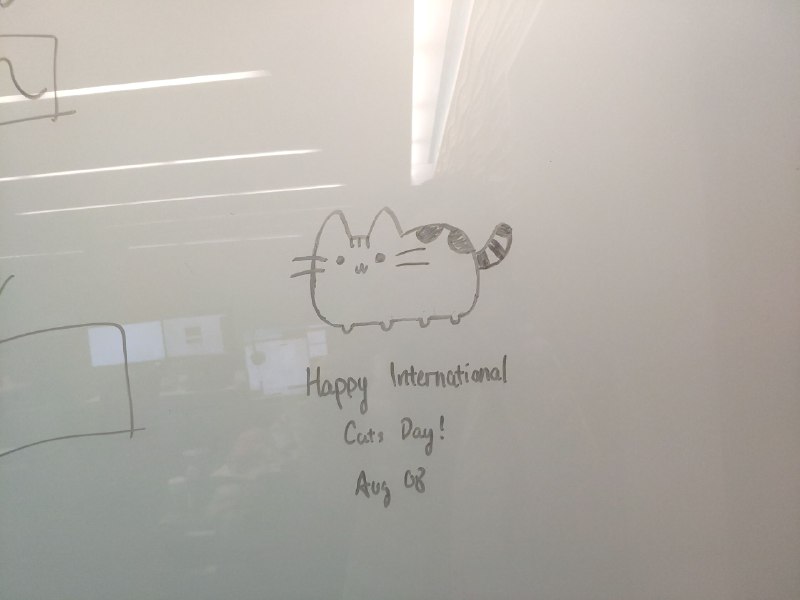 Happy International
Cats Day!
Aug 08